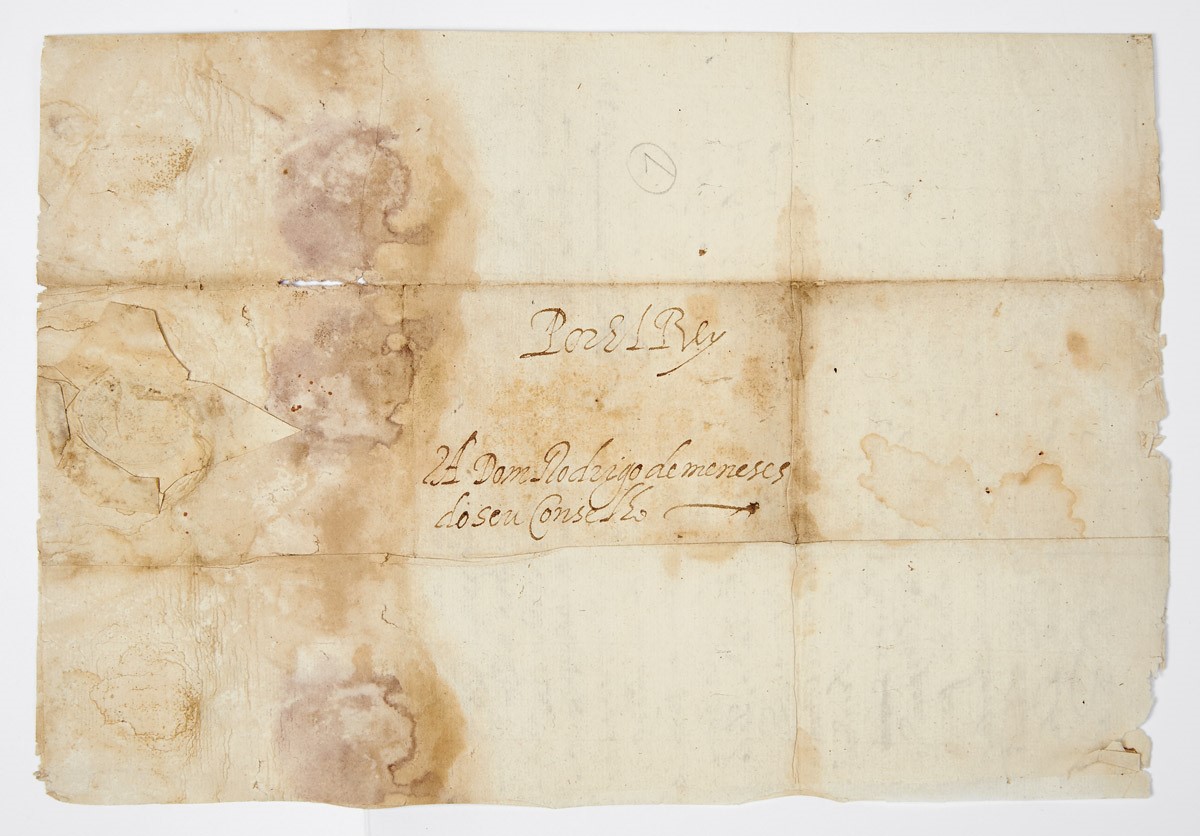 7
Por El Rey
A Dom Rodrigo de meneses
do seu Conselho